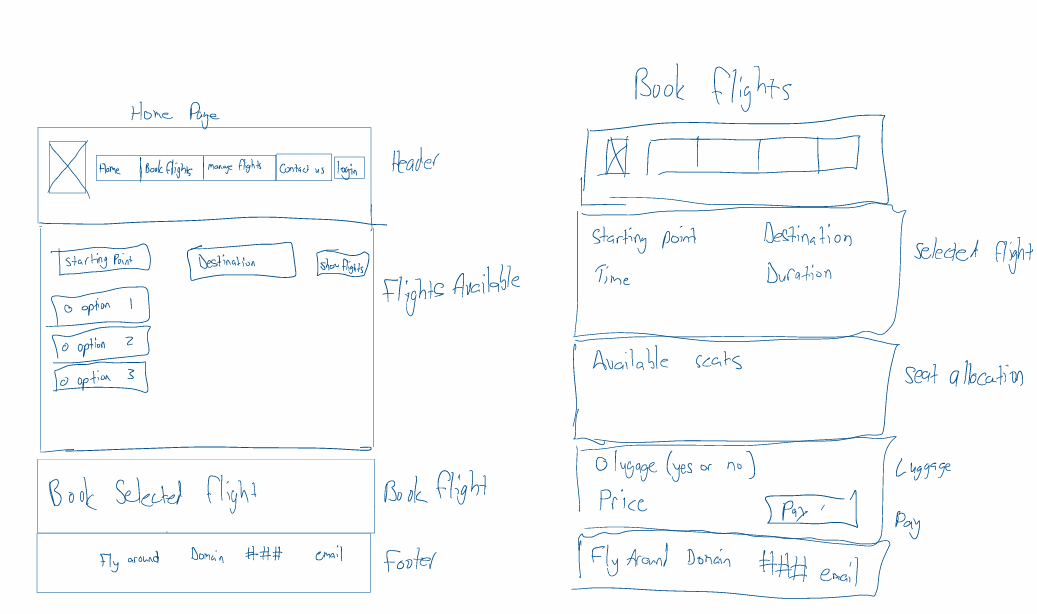 Home Page
Home Book flights manage flights Contact us login
Header
Starting Point Destination show flights
Flights Available
O option 1
O option 2
O option 3
Book Selected flight
Book flight
Fly around Domain ### email
Footer
Book flights
Starting point Destination
Time Duration
selected flight
Available seats
seat allocation
O lugage (yes or no)
Luggage
Price
Pay
Pay
Fly Around Domain ### email